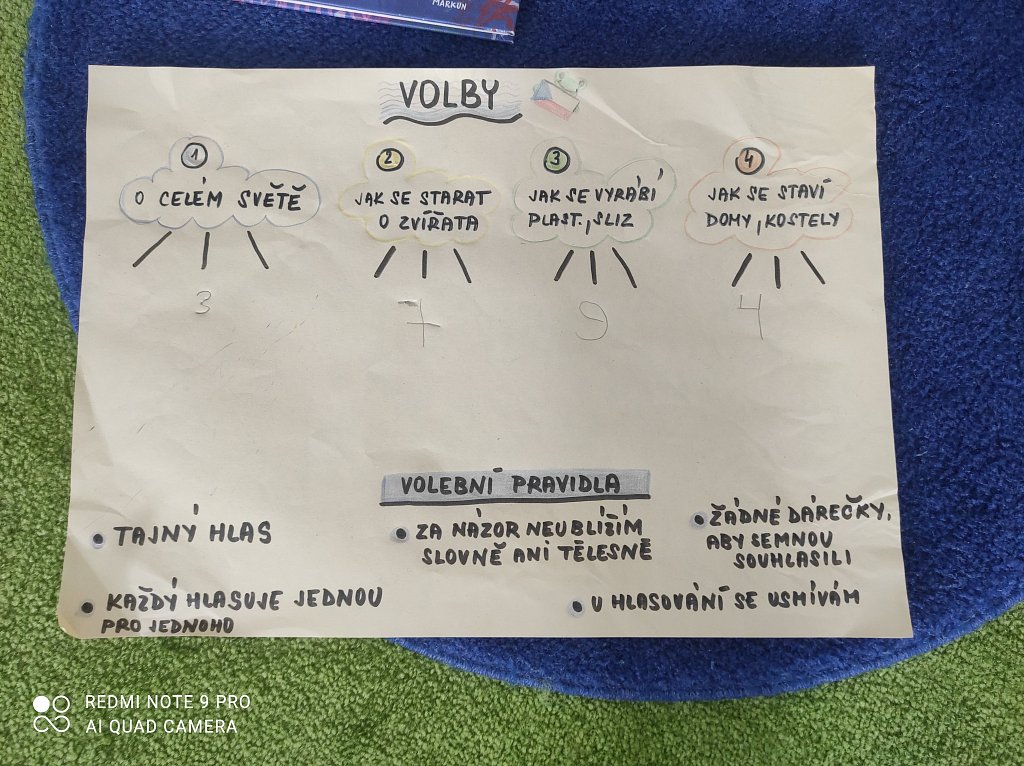 MARKUN
VOLBY
1
O CELÉM SVĚTĚ
3
2
JAK SE STARAT
O ZVÍŘATA
7
3
JAK SE VYRÁBÍ
PLAST., SLIZ
9
4
JAK SE STAVÍ
DOMY, KOSTELY
4
VOLEBNÍ PRAVIDLA
• TAJNÝ HLAS
• ZA NÁZOR NEUBLÍŽÍM
SLOVNĚ ANI TĚLESNĚ
• ŽÁDNÉ DÁREČKY,
ABY SEMNOU
SOUHLASILI
• KAŽDÝ HLASUJE JEDNOU
PRO JEDNOHO
• U HLASOVÁNÍ SE USMÍVÁM
REDMI NOTE 9 PRO
AI QUAD CAMERA